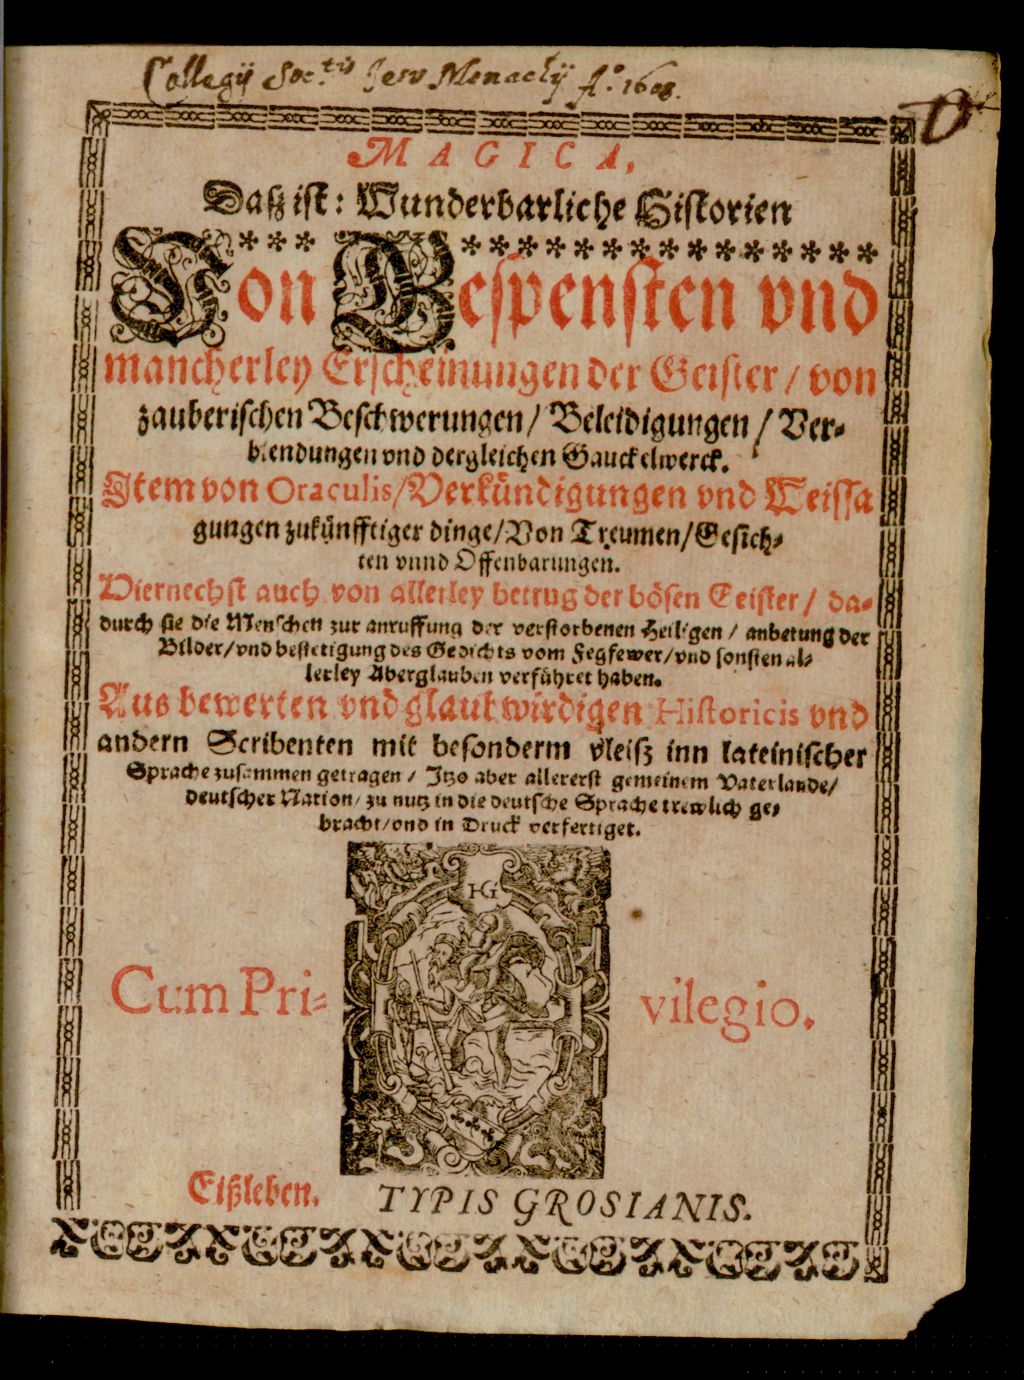 Collegij Soc.tis Jesu Monachij A°. 1608.
MAGICA,
Daß ist: Wunderbarliche Historien
* * * * * * * * * * * * * * * * * *
Von Gespensten vnd
mancherley Erscheinungen der Geister / von
zauberischen Beschwerungen / Beleidigungen / Ver-
blendungen vnd dergleichen Gauckelwerck.
Item von Oraculis / Verkündigungen vnd Weissa
gungen zukünfftiger dinge / Von Treumen / Gesich-
ten vnnd Offenbarungen.
Viernechst auch von allerley betrug der bösen Geister / da-
durch sie die Menschen zur anruffung der verstorbenen Heiligen / anbetung der
Bilder / vnd bestetigung des Gedichts vom Fegfewer / vnd sonsten al-
lerley Aberglauben verführet haben.
Aus bewerten vnd glaubwirdigen Historicis vnd
andern Scribenten mit besonderm vleisz inn lateinischer
Sprache zusammen getragen / Itzo aber allererst gemeinem Vaterlande /
deutscher Nation / zu nutz in die deutsche Sprache trewlich ge-
bracht / vnd in Druck verfertiget.
HG
Cum Pri- vilegio.
Eißleben. TYPIS GROSIANIS.